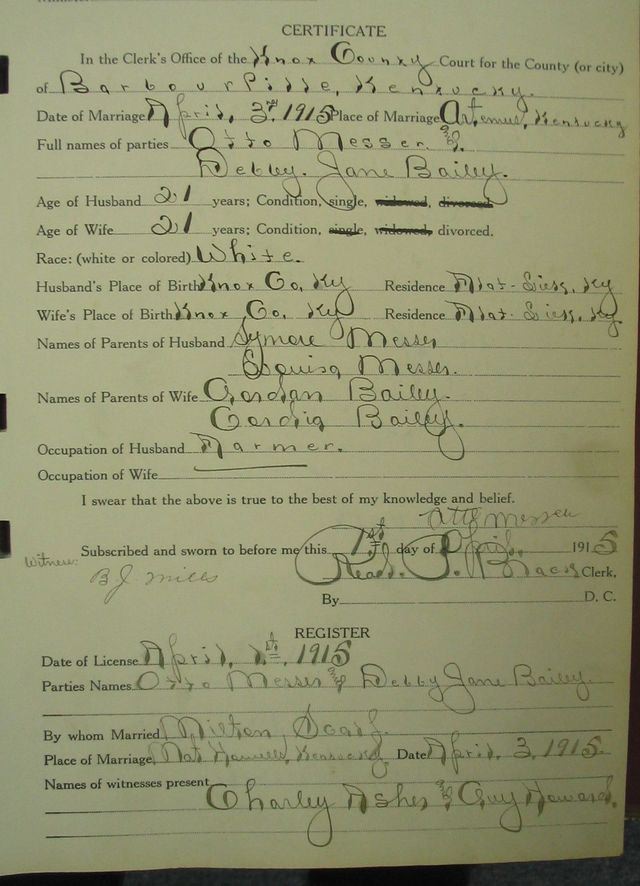 CERTIFICATE
In the Clerk's Office of the Knox County Court for the County (or city)
of Barbourville, Kentucky.
Date of Marriage April, 3rd, 1915 Place of Marriage Artemus, Kentucky
Full names of parties Otto Messer &
Debby. Jane Bailey.
Age of Husband 21 years; Condition, single, widowed, divorced
Age of Wife 21 years; Condition, single, widowed, divorced.
Race: (white or colored) White.
Husband's Place of Birth Knox Co, Ky Residence Flat-Lick, Ky
Wife's Place of Birth Knox Co, Ky Residence Flat-Lick, Ky
Names of Parents of Husband Messer
Messer.
Names of Parents of Wife Bailey.
Bailey.
Occupation of Husband Farmer.
Occupation of Wife
I swear that the above is true to the best of my knowledge and belief.
Messer
Subscribed and sworn to before me this 1st day of April, 1915
Witness: Read. P. Black Clerk,
B J Mills
By D. C.
REGISTER
Date of License April, 1st, 1915
Parties Names Otto Messer & Debby Jane Bailey.
By whom Married Milton
Place of Marriage, Kentucky Date April, 3, 1915
Names of witnesses present
Charley Asher & Guy Howard.